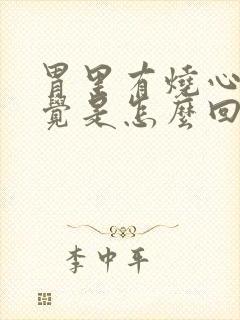 胃里有燒心
覺是怎麼回
李中平